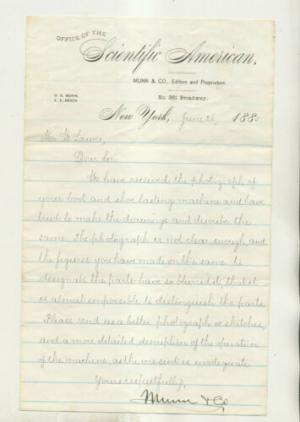 OFFICE OF THE
Scientific American,
MUNN & CO., Editors and Proprietors.
No. 361 Broadway.
O. D. MUNN.
A. E. BEACH.
New York, June 26, 188
Dear Sir
We have received the photograph of
your boot and shoe lasting machine and have
tried to make the drawings and describe the
same. The photograph is not clear enough, and
the figures you have made on the same to
designate the parts have so blurred it, that it
is almost impossible to distinguish the parts.
Please send us a better photograph or sketches,
and a more detailed description of the operation
of the machine, as the one sent is inadequate
Yours respectfully,
Munn & Co